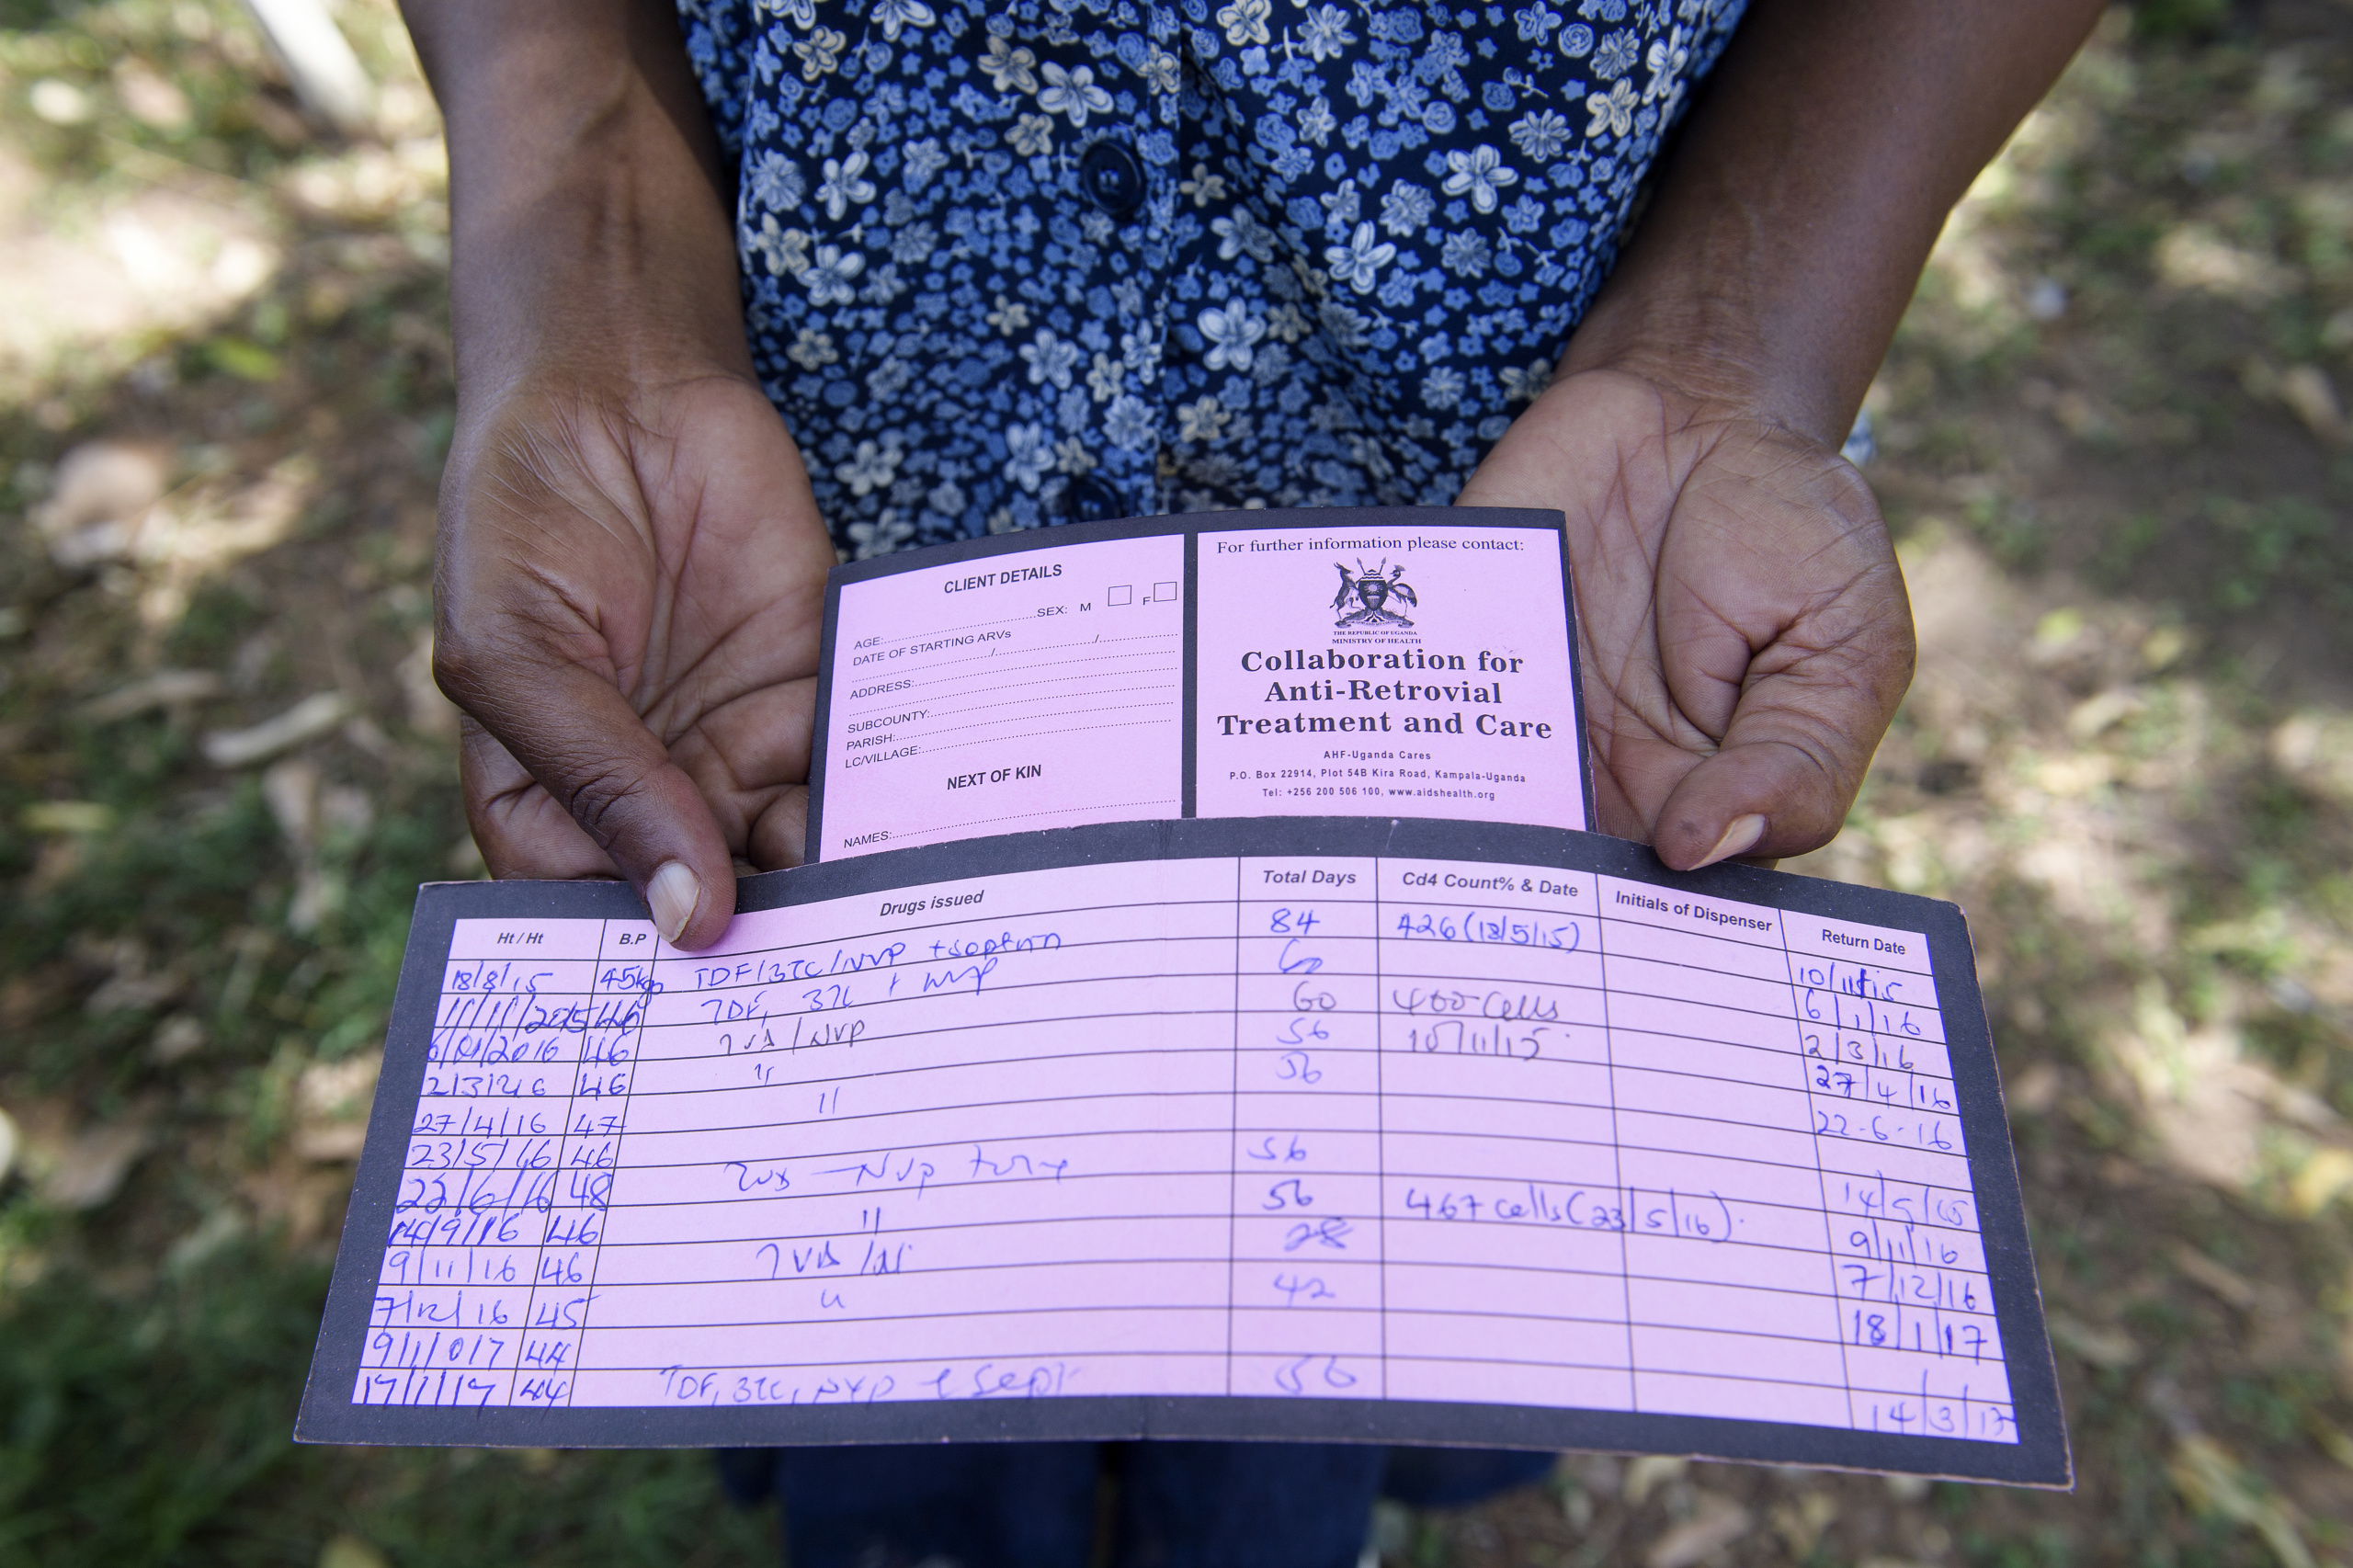 CLIENT DETAILS
AGE:..............................SEX: M F
DATE OF STARTING ARVs
............................/............................/......................
ADDRESS:
SUBCOUNTY:
PARISH:
LC/VILLAGE:
NEXT OF KIN
NAMES:
For further information please contact:
THE REPUBLIC OF UGANDA
MINISTRY OF HEALTH
Collaboration for
Anti-Retrovial
Treatment and Care
AHF-Uganda Cares
P.O. Box 22914, Plot 54B Kira Road, Kampala-Uganda
Tel: +256 200 506 100, www.aidshealth.org
Ht / Ht B.P Drugs issued Total Days Cd4 Count% & Date Initials of Dispenser Return Date
18/8/15 45kg TDF/3TC/NVP +septrin 84 426 (13/5/15) 10/11/15
11/11/2015 46 TDF, 3TC + NVP 60 6/1/16
6/01/2016 46 /NVP 60 400 cells 2/3/16
2/3/2016 46 " 56 10/11/15 27/4/16
27/4/16 47 " 56 22-6-16
23/5/16 46
22/6/16 48 NVP 56 14/9/16
14/9/16 46 " 56 467 cells (23/5/16). 9/11/16
9/11/16 46 TVD 28 7/12/16
7/12/16 45 " 42 18/1/17
9/1/017 44
17/1/17 44 TDF, 3TC, NVP + Sept 56 14/3/17